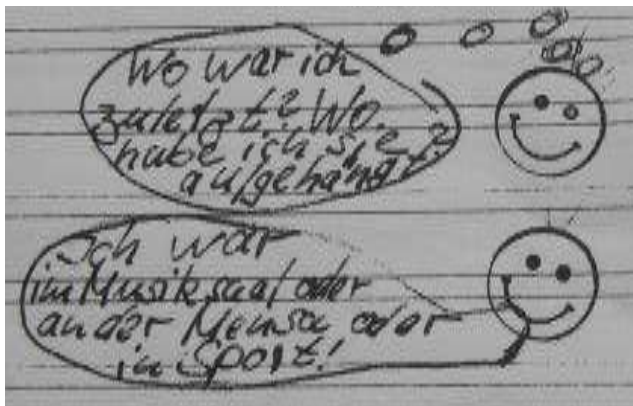 Wo war ich
zuletzt? Wo
habe ich sie
aufgehängt?
Ich war
im Musiksaal oder
an der Mensa oder
in Sport!